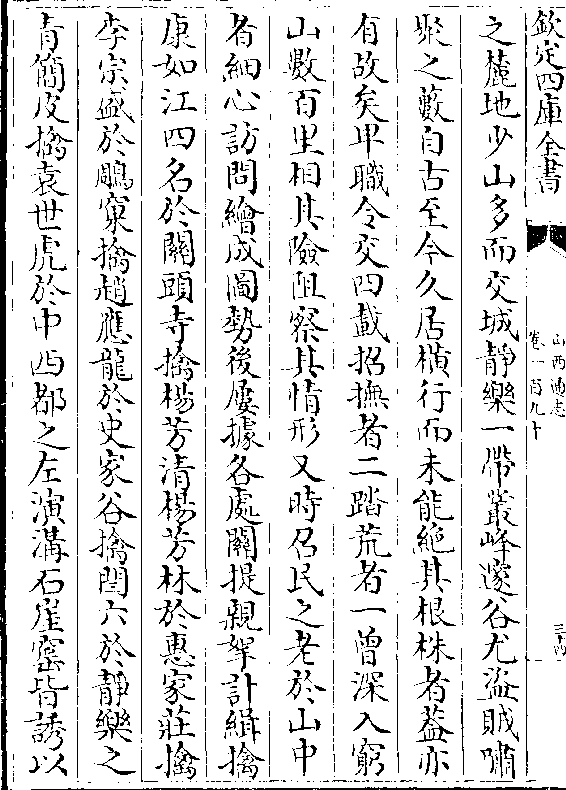 欽定四庫全書
山西通志
卷一百九十
三十四
之麓地少山多而交城靜樂一帶叢峰邃谷尤盜賊嘯
聚之藪自古至今久居橫行而未能絶其根株者葢亦
有故矣卑職令交四載招撫者二踏荒者一曾深入窮
山數百里相其險阻察其情形又時召民之老於山中
者細心訪問繪成圖勢後屢據各處關提親率計緝擒
康如江四名於關頭寺擒楊芳清楊芳林於惠家莊擒
李宗盛於鵰窠擒趙應龍於史家谷擒閆六於靜樂之
青簡皮擒袁世虎於中西都之左演溝石崖窰皆誘以